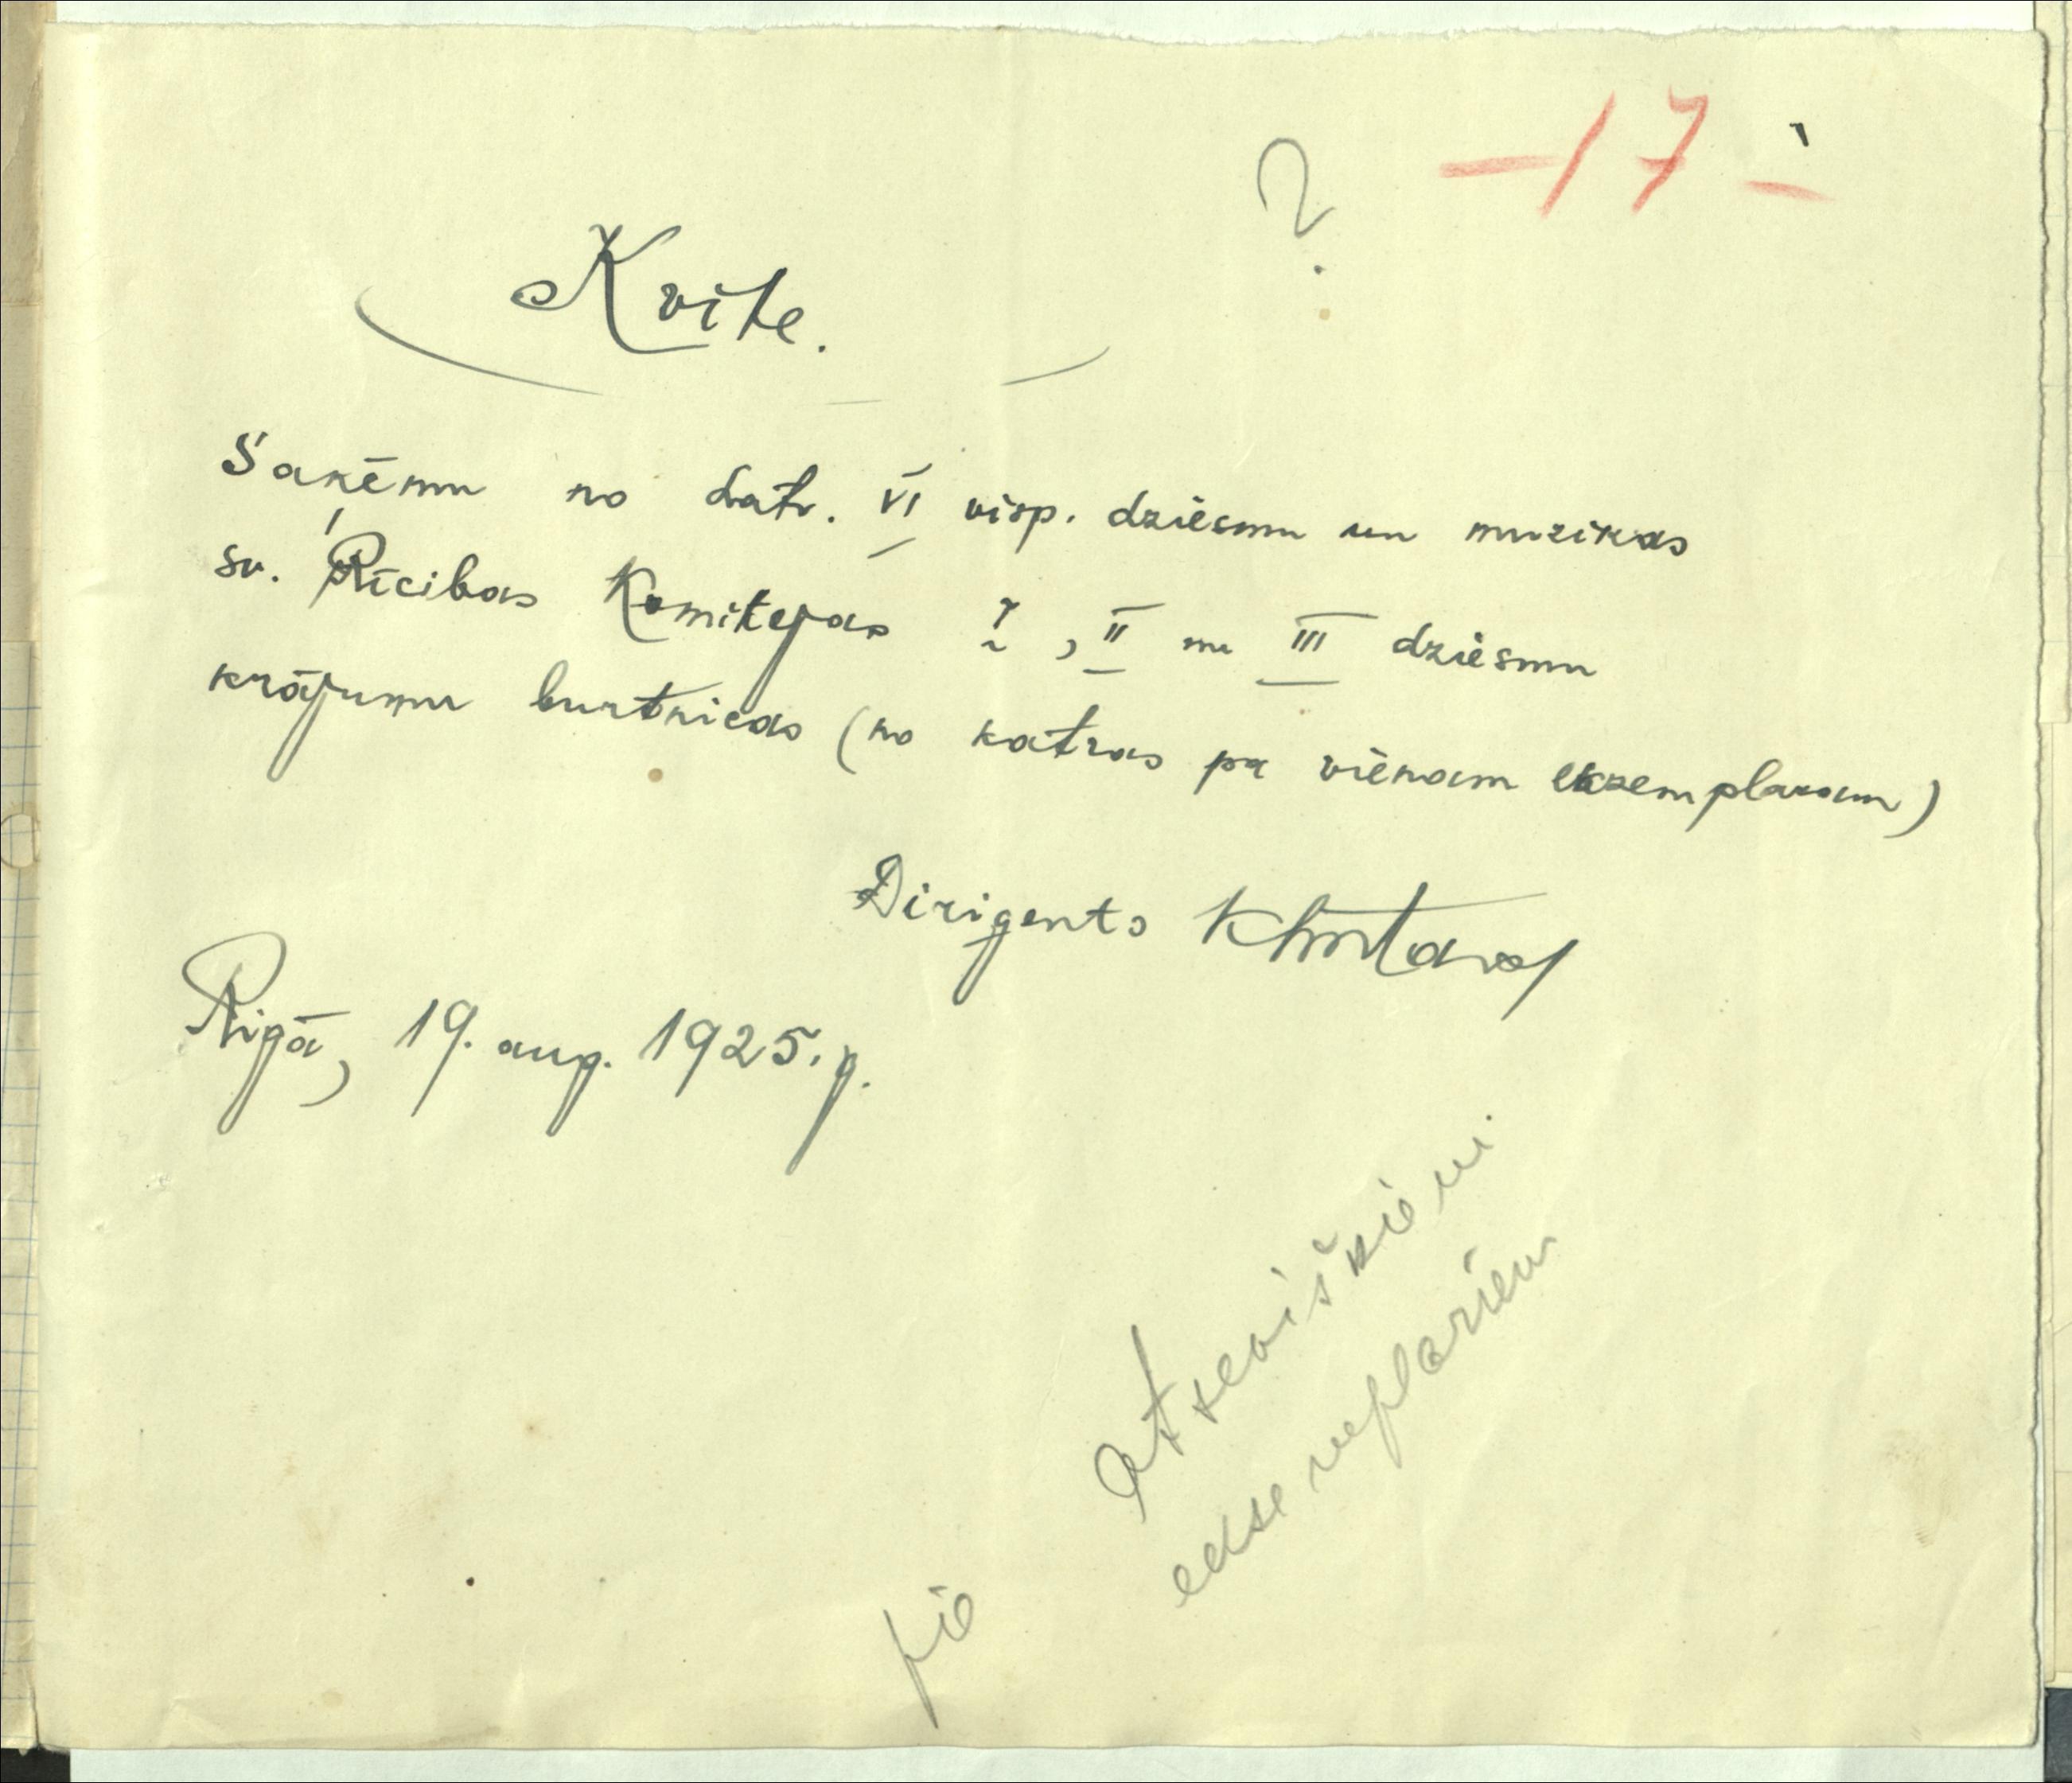 ? —17—
Kvite.
Saņēmu no Latv. VI visp. dziesmu un muzikas
sv. Rīcibas Komitejas I, II un III dziesmu
krājumu burtnicas (no katras pa vienam ekzemplaram)
Dirigents
Rigā, 19. aug. 1925. g.
pie atsevišķiem
eksemplariem